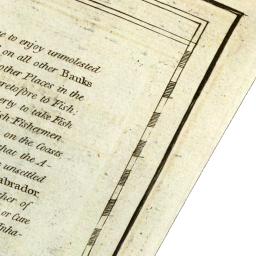 to enjoy unmolested
on all other Banks
other Places in the
heretofore to Fish;
erty to take Fish
sh Fishermen
on the Coasts
that the A-
unsettled
abrador
her of
or Cure
Inha-